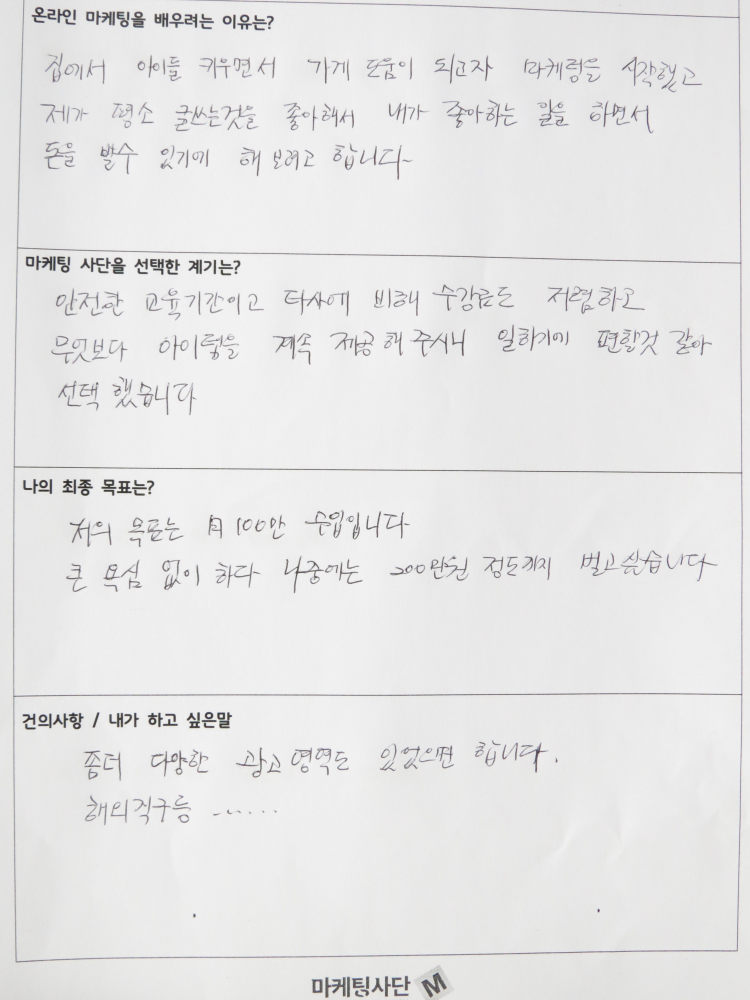 온라인 마케팅을 배우려는 이유는?
집에서 아이들 키우면서 가게 도움이 되고자 마케팅을 시작했고
제가 평소 글쓰는것을 좋아해서 내가 좋아하는 일을 하면서
돈을 벌수 있기에 해 보려고 합니다
마케팅 사단을 선택한 계기는?
안전한 교육기간이고 타사에 비해 수강료도 저렴하고
무엇보다 아이템을 계속 제공해 주시니 일하기에 편할것 같아
선택 했습니다
나의 최종 목표는?
저의 목표는 月 100만 수입입니다
큰 욕심 없이 하다 나중에는 200만원 정도까지 벌고싶습니다
건의사항 / 내가 하고 싶은말
좀더 다양한 광고 영역도 있었으면 합니다.
해외직구등 ......
마케팅사단 M